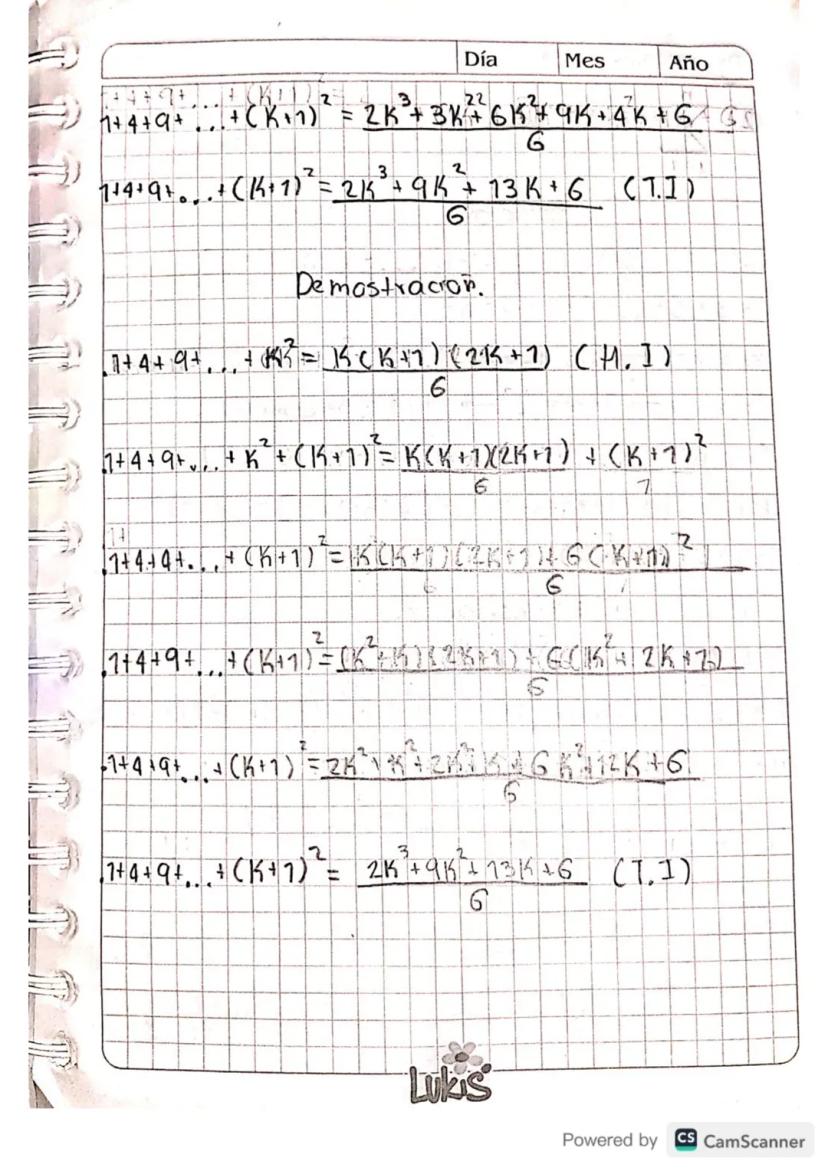 Día Mes Año
1+4+9+...+(K+1)² = 2K³+3K²+6K²+9K+4K+6
6
1+4+9+...+(K+1)² = 2K³+9K²+13K+6 (T.I)
6
Demostración.
1+4+9+...+K² = K(K+1)(2K+1) (H.I)
6
1+4+9+...+K²+(K+1)² = K(K+1)(2K+1) + (K+1)²
6 1
1+4+4+...+(K+1)² = K(K+1)(2K+1)+6(K+1)²
6
1+4+9+...+(K+1)² = (K²+K)(2K+1)+6(K²+2K+1)
6
1+4+9+...+(K+1)² = 2K²+K²+2K²+K+6K²+12K+6
6
1+4+9+...+(K+1)² = 2K³+9K²+13K+6 (T.I)
6
Lukis
Powered by CS CamScanner